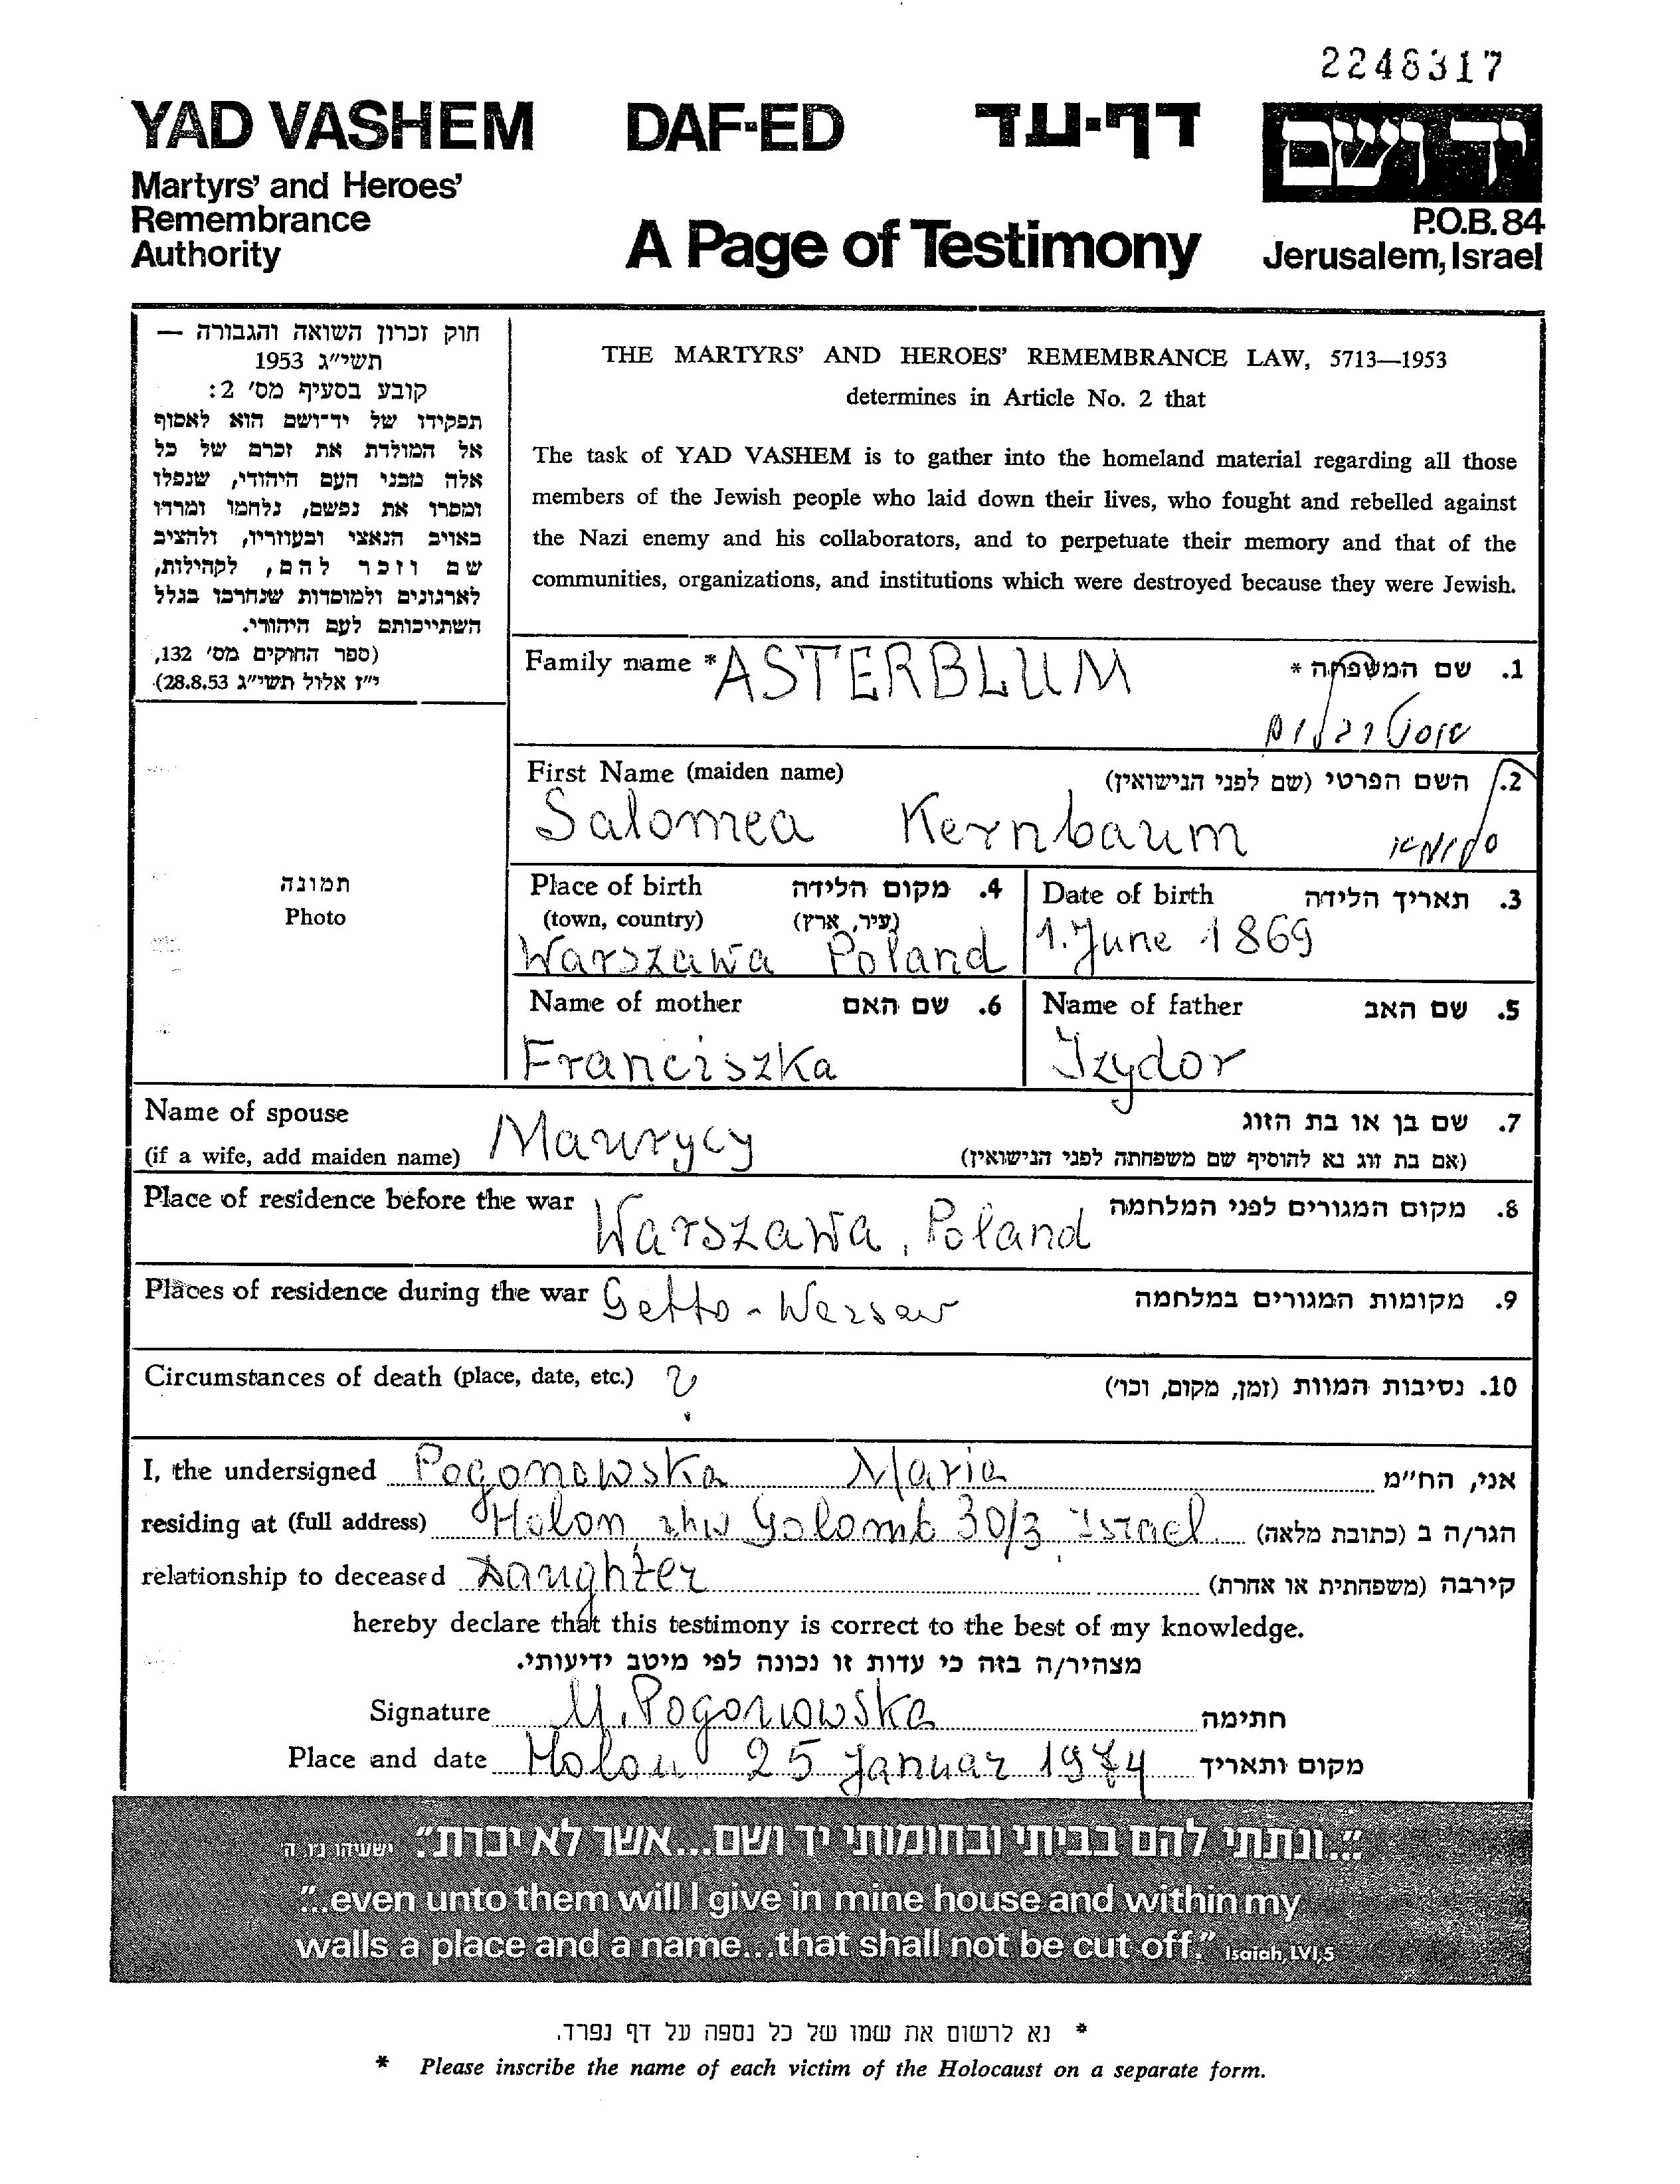 2248317
YAD VASHEM DAF-ED דף-עד יד ושם
Martyrs' and Heroes'
Remembrance
Authority
A Page of Testimony
P.O.B. 84
Jerusalem, Israel
חוק זכרון השואה והגבורה —
תשי"ג 1953
קובע בסעיף מס' 2:
תפקידו של יד־ושם הוא לאסוף
אל המולדת את זכרם של כל
אלה מבני העם היהודי, שנפלו
ומסרו את נפשם, נלחמו ומרדו
באויב הנאצי ובעוזריו, ולהציב
שם וזכר להם, לקהילות,
לארגונים ולמוסדות שנחרבו בגלל
השתייכותם לעם היהודי.
(ספר החוקים מס' 132,
י"ז אלול תשי"ג 28.8.53)
THE MARTYRS' AND HEROES' REMEMBRANCE LAW, 5713—1953
determines in Article No. 2 that
The task of YAD VASHEM is to gather into the homeland material regarding all those
members of the Jewish people who laid down their lives, who fought and rebelled against
the Nazi enemy and his collaborators, and to perpetuate their memory and that of the
communities, organizations, and institutions which were destroyed because they were Jewish.
תמונה
Photo
Family name * ASTERBLUM 1. שם המשפחה *
אסטרבלום
First Name (maiden name) 2. השם הפרטי (שם לפני הנישואין)
Salomea Kernbaum סלומאה
Place of birth 4. מקום הלידה
(town, country) (עיר, ארץ)
Warszawa Poland
Date of birth 3. תאריך הלידה
1. June 1869
Name of mother 6. שם האם
Franciszka
Name of father 5. שם האב
Izydor
Name of spouse 7. שם בן או בת הזוג
(if a wife, add maiden name) Maurycy (אם בת זוג נא להוסיף שם משפחתה לפני הנישואין)
Place of residence before the war Warszawa, Poland 8. מקום המגורים לפני המלחמה
Places of residence during the war Getto - Warsaw 9. מקומות המגורים במלחמה
Circumstances of death (place, date, etc.) ? 10. נסיבות המוות (זמן, מקום, וכו')
I, the undersigned Pogonowska Maria אני, הח"מ
residing at (full address) Holon, Golomb 30/3 Israel הגר/ה ב (כתובת מלאה)
relationship to deceased Daughter קירבה (משפחתית או אחרת)
hereby declare that this testimony is correct to the best of my knowledge.
מצהיר/ה בזה כי עדות זו נכונה לפי מיטב ידיעותי.
Signature M. Pogonowska חתימה
Place and date Holon 25 Januar 1974 מקום ותאריך
"...ונתתי להם בביתי ובחומותי יד ושם...אשר לא יכרת." ישעיהו נו, ה'
"...even unto them will I give in mine house and within my
walls a place and a name...that shall not be cut off." Isaiah, LVI,5
* נא לרשום את שמו של כל נספה על דף נפרד.
* Please inscribe the name of each victim of the Holocaust on a separate form.